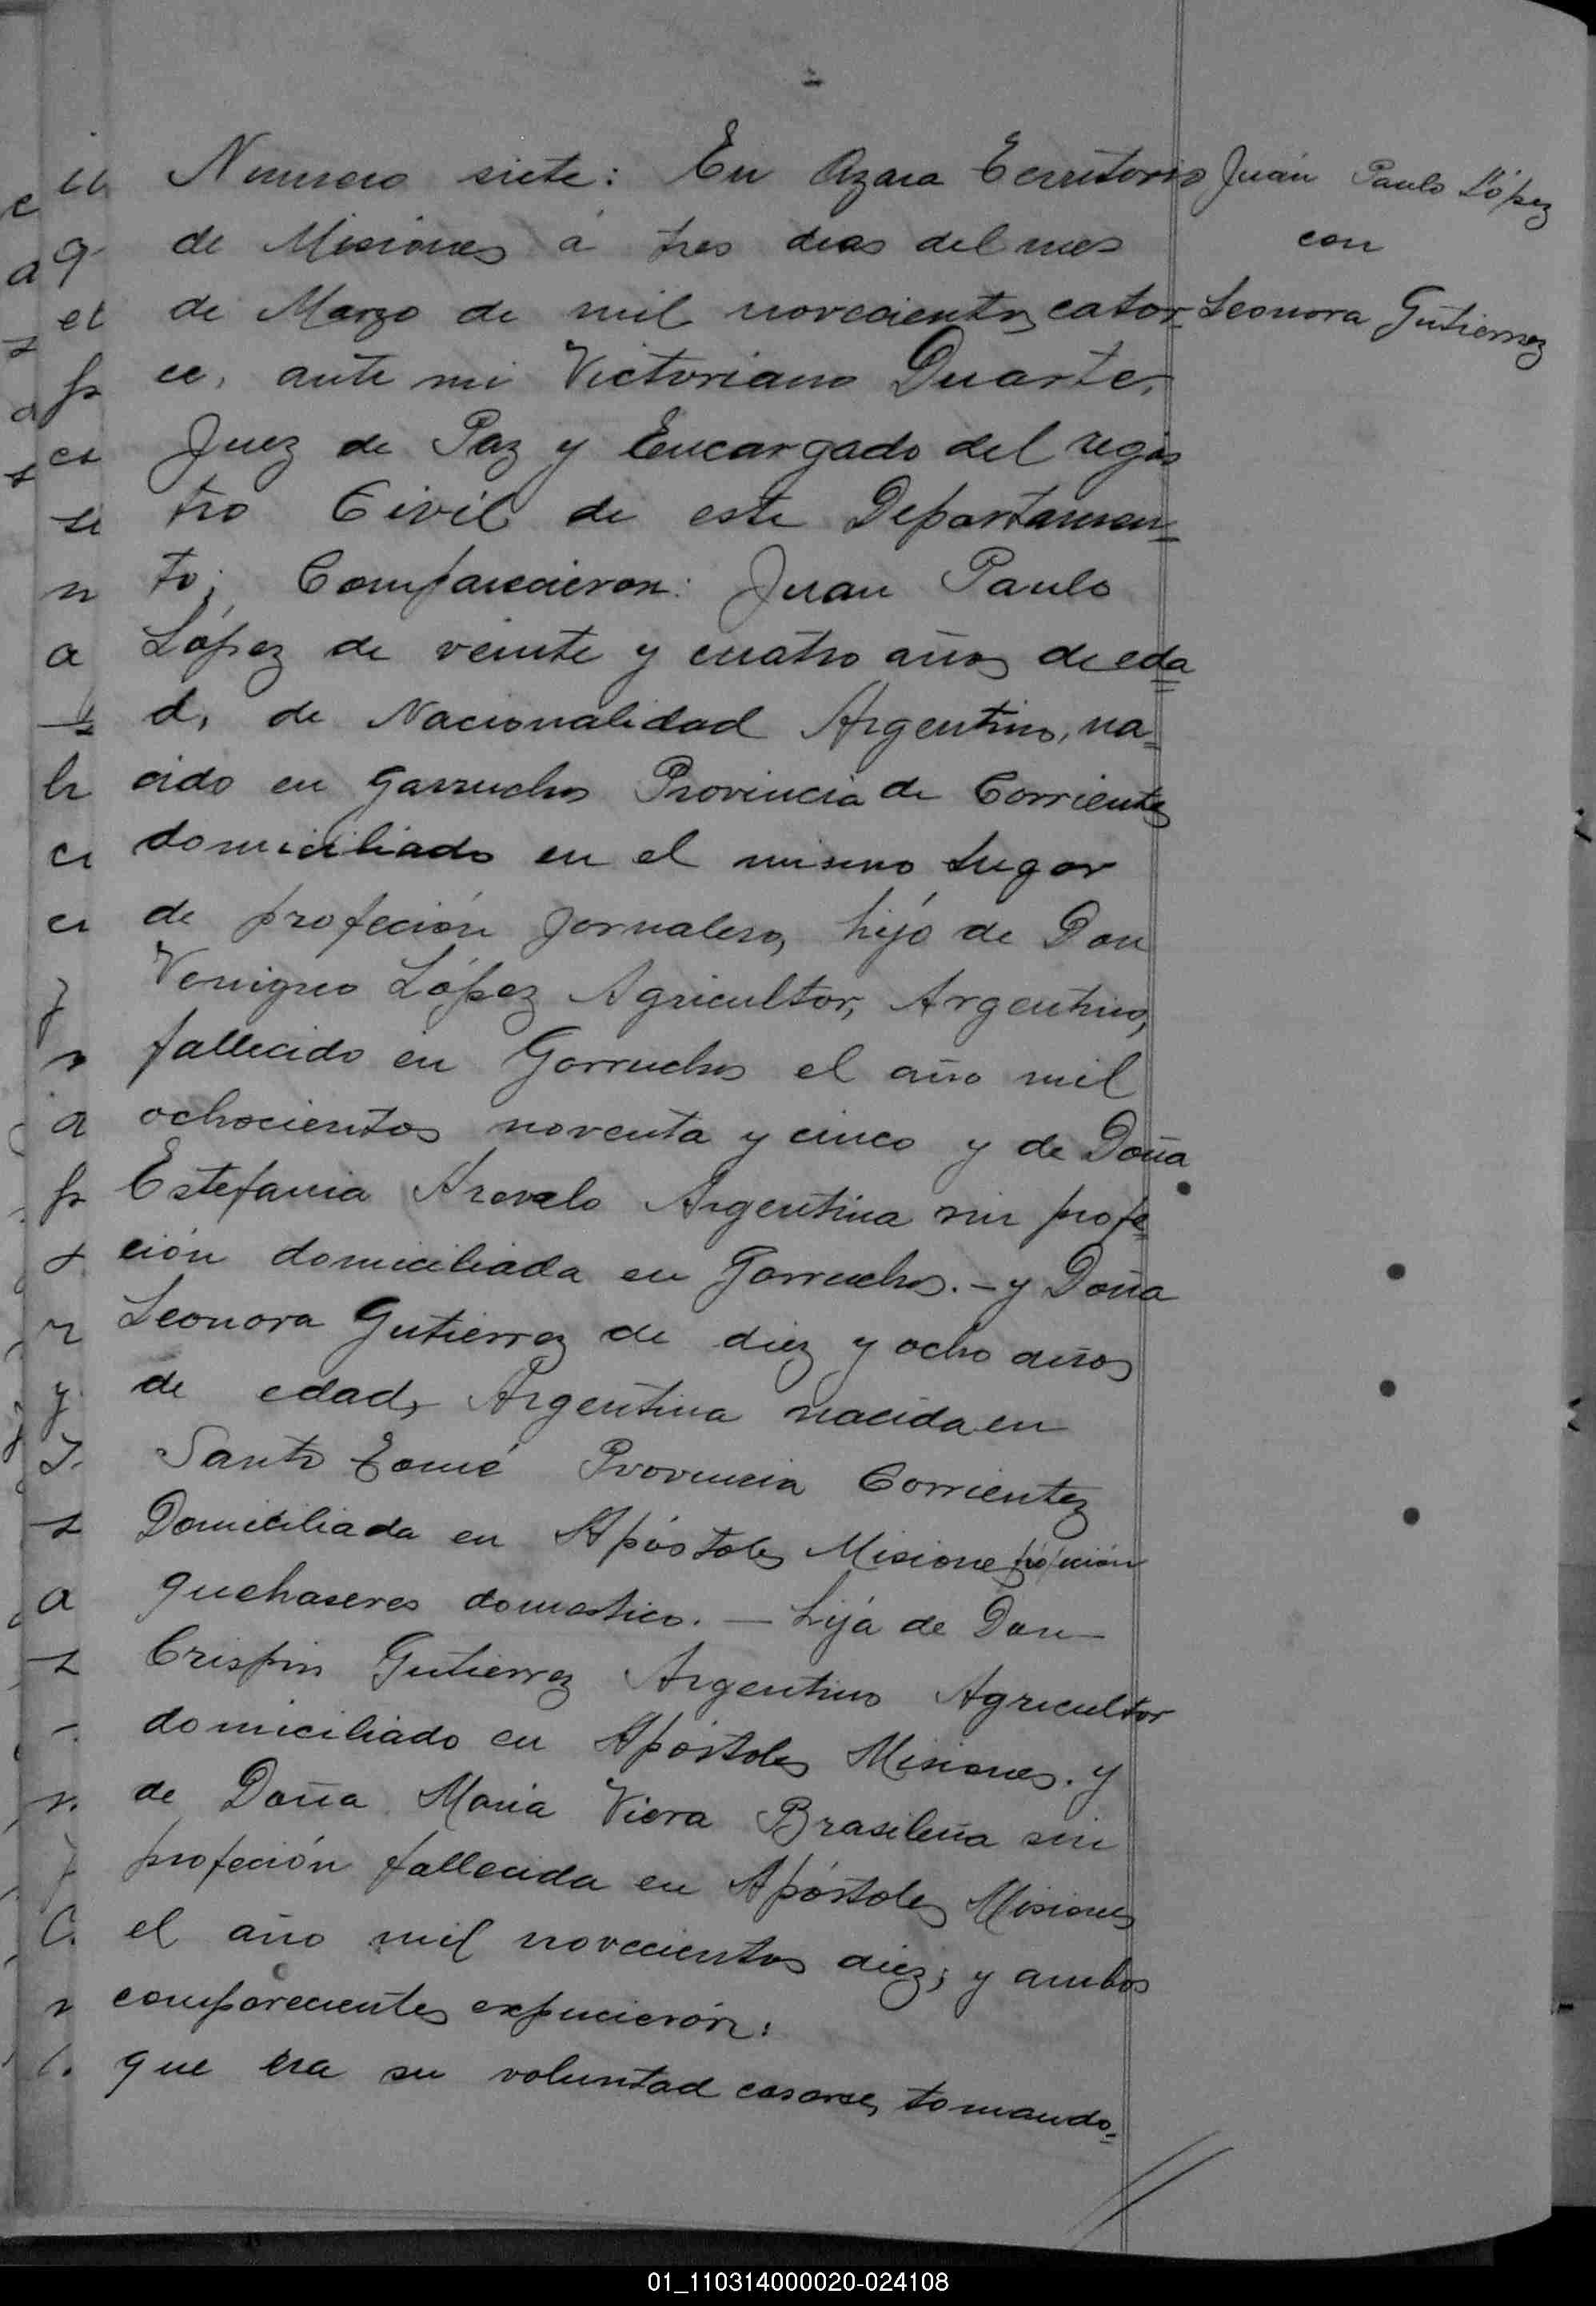 Numero siete: En Azara Territorio
de Misiones á tres dias del mes
de Marzo de mil novecientos cator-
ce, ante mi Victoriano Duarte,
Juez de Paz y Encargado del regis
tro Civil de este Departamen=
to; Comparecieron: Juan Paulo
López de veinte y cuatro años de eda=
d, de Nacionalidad Argentino, na=
cido en Garruchos Provincia de Corrientes
domiciliado en el mismo lugar
de profeción Jornalero, hijo de Don
López Agricultor, Argentino,
fallecido en Garruchos el año mil
ochocientos noventa y cinco y de Doña
Estefania Arevalo Argentina sin profe=
ción domiciliada en Garruchos. - y Doña
Leonora Gutierrez de diez y ocho años
de edad, Argentina nacida en
Santo Tomé Provincia Corrientez
Domiciliada en Apóstoles Misiones profeción
quehaseres domestico. — hija de Don —
Crispin Gutierrez Argentino Agricultor
domiciliado en Apóstoles Misiones. y
de Doña Maria Viera Brasileña sin
profeción fallecida en Apóstoles Misiones
el año mil novecientos diez; y ambos
comparecientes expucierón:
que era su voluntad casarse, tomando=
Juán Paulo López
con
Leonora Gutierrez
01_110314000020-024108